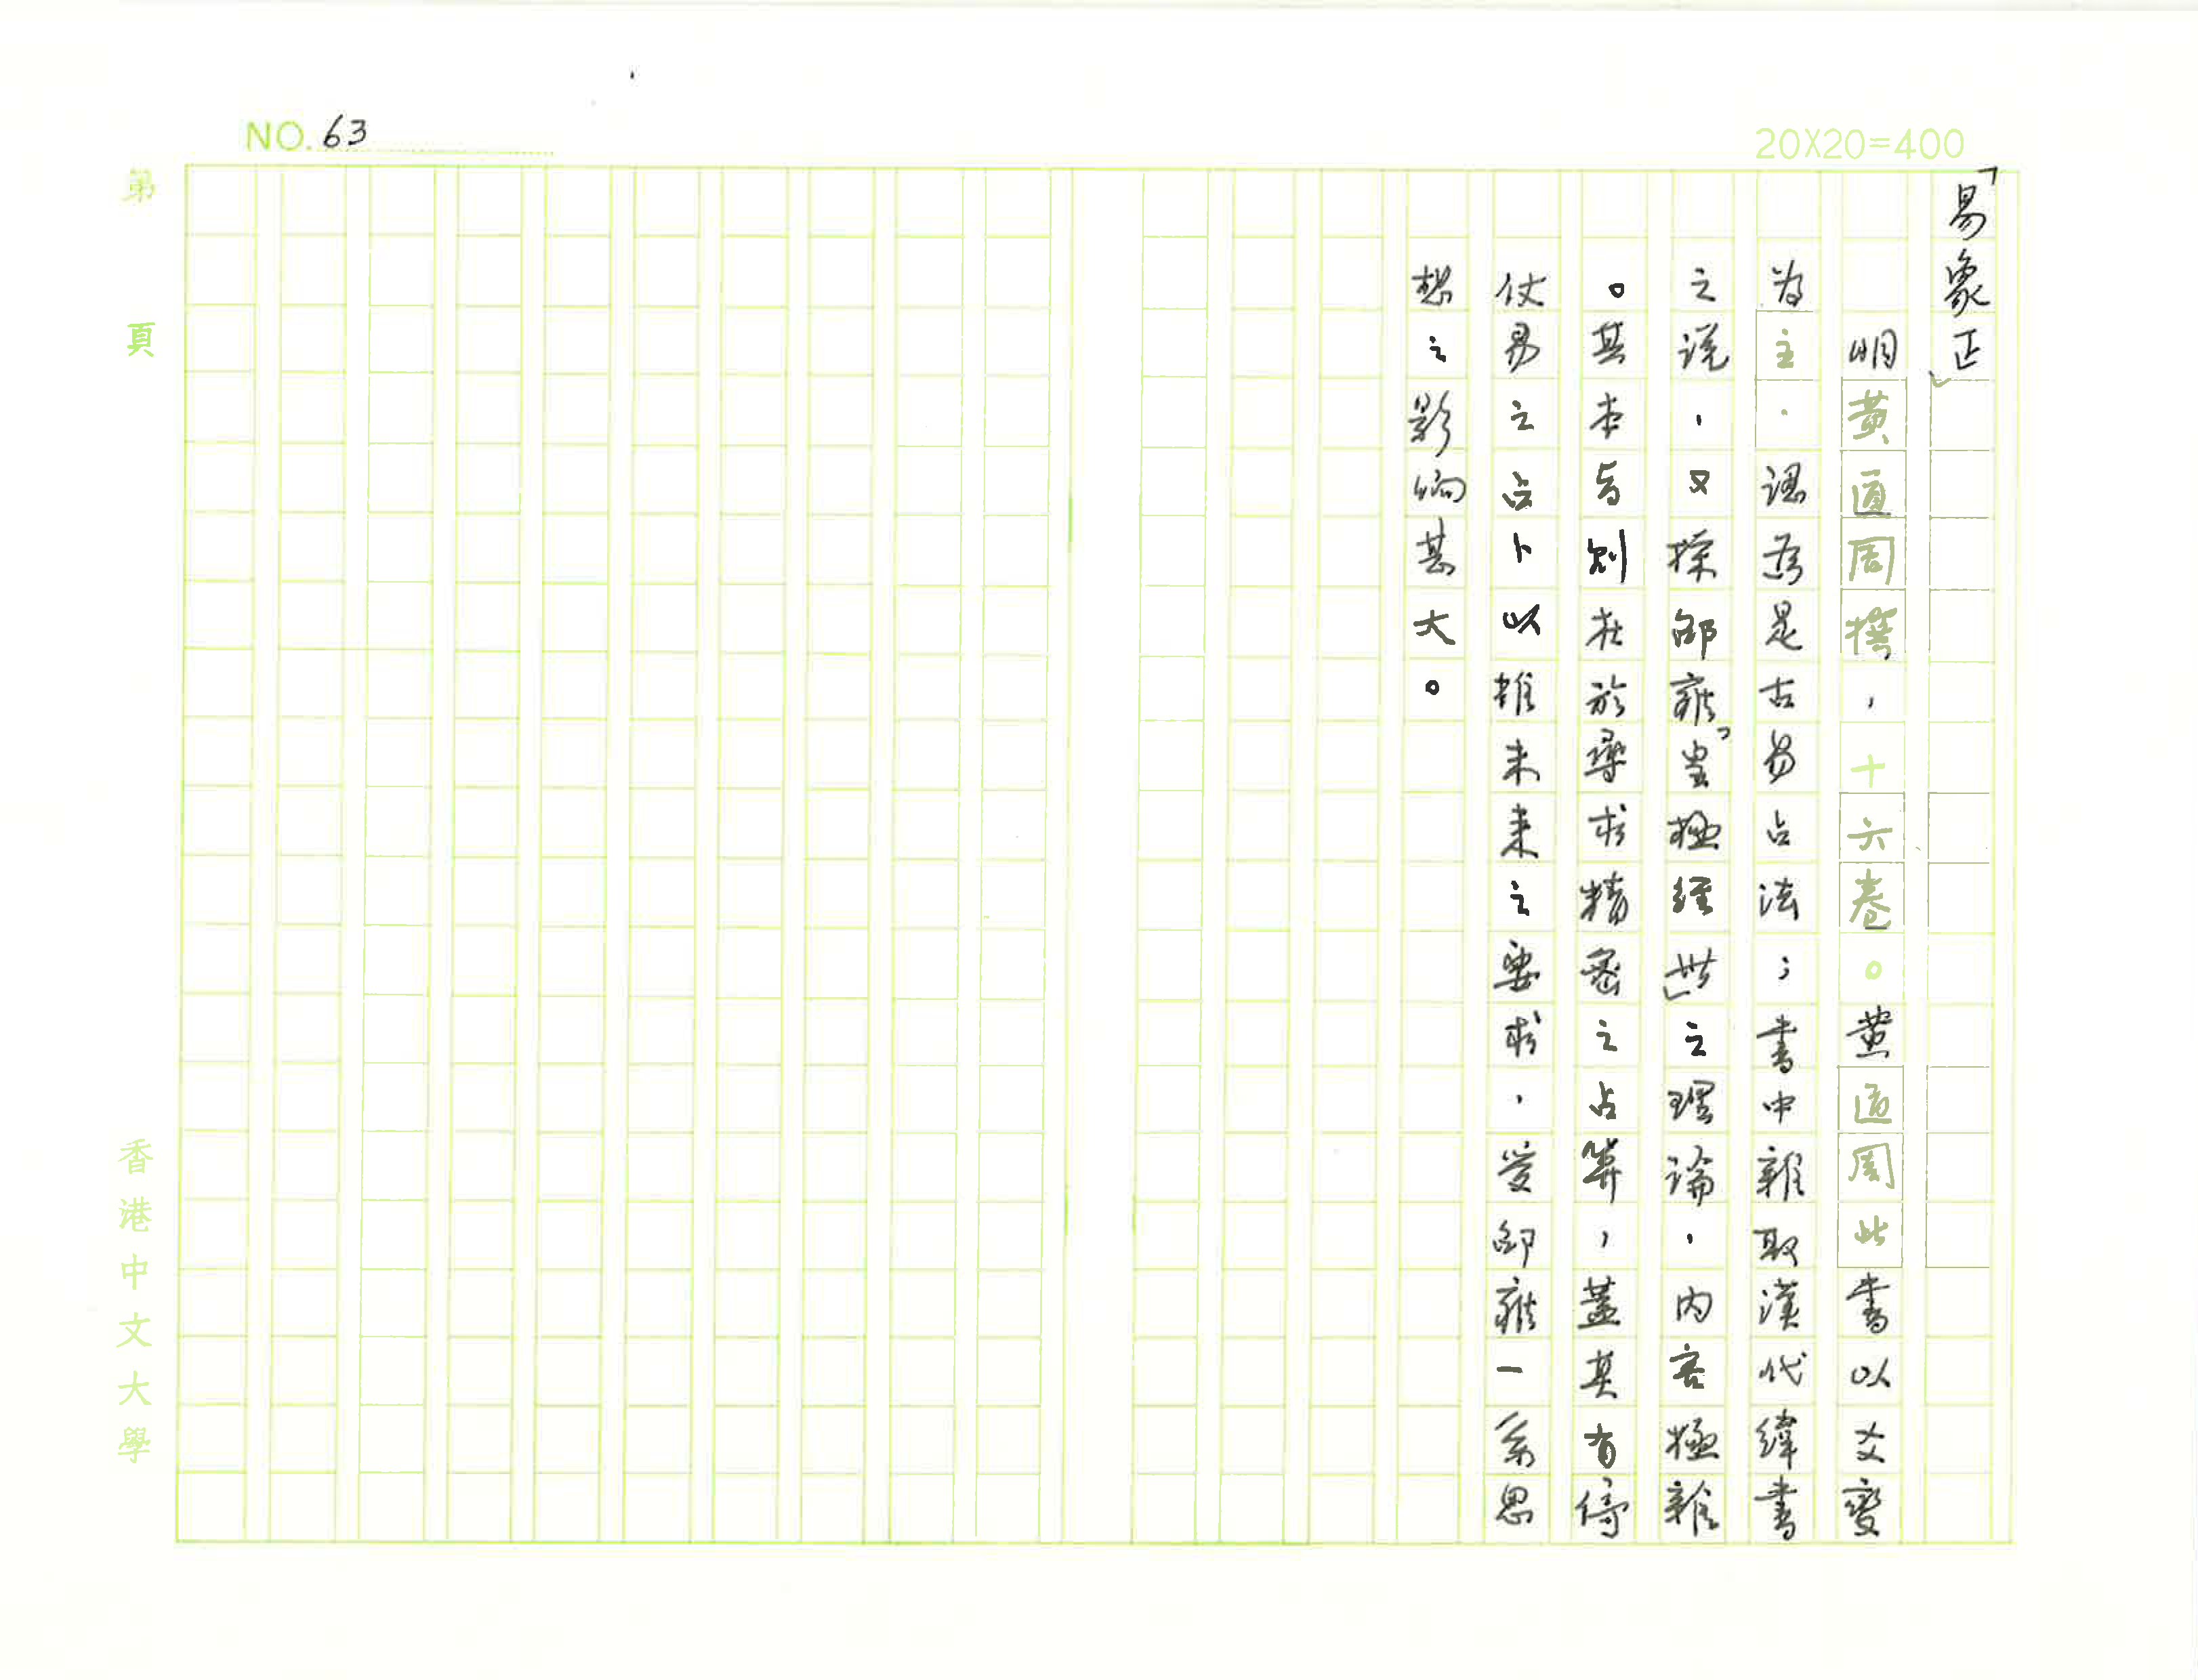 NO. 63
20X20=400
「易象正」
明黃道周撰,十六卷。黃道周此書以爻變
為主,認為是古易占法;書中雜取漢代緯書
之說,又採邵雍「皇極經世」之理論,內容極雜
。其本旨則在於尋求精密之占算,蓋其有倚
仗易之占卜以推未來之要求,受邵雍一系思
想之影响甚大。
第 頁
香港中文大學